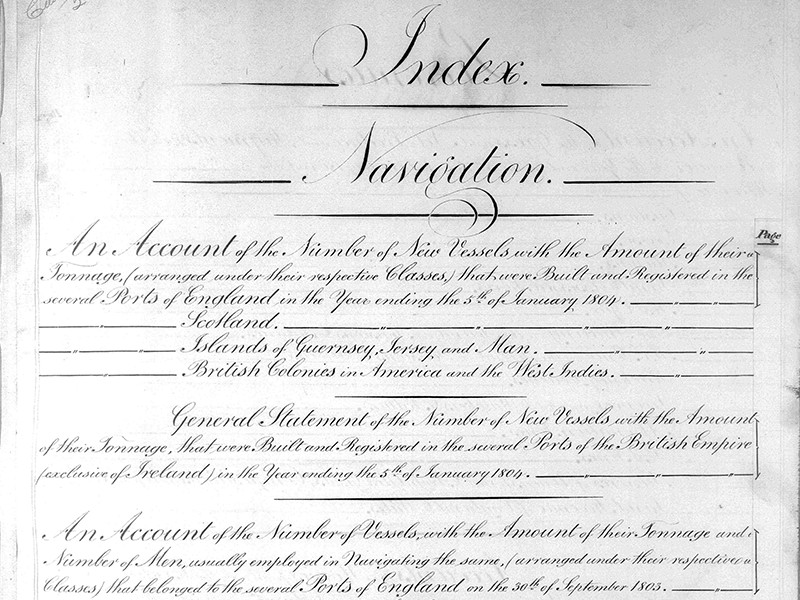 Index.
Navigation.
Page
An Account of the Number of New Vessels, with the Amount of their
Tonnage, (arranged under their respective Classes,) that were Built and Registered in the
several Ports of England in the Year ending the 5th of January 1804.
" Scotland. " " " "
" " Islands of Guernsey, Jersey, and Man. " "
" British Colonies in America and the West Indies. "
General Statement of the Number of New Vessels with the Amount
of their Tonnage, that were Built and Registered in the several Ports of the British Empire
(exclusive of Ireland) in the Year ending the 5th of January 1804. " " "
An Account of the Number of Vessels, with the Amount of their Tonnage and
Number of Men, usually employed in Navigating the same, (arranged under their respective
Classes) that belonged to the several Ports of England on the 30th of September 1803. " "